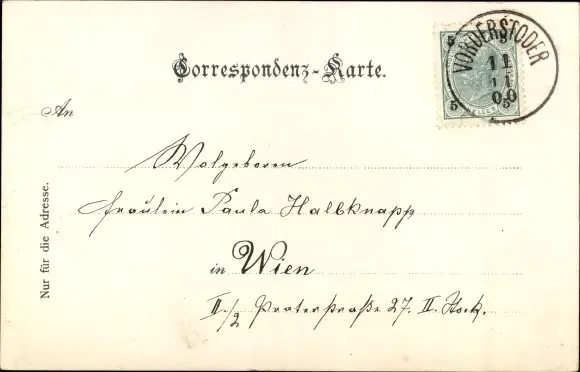 VORDERSTODER
11
11
00
5
5
5
5
HELLER
Correspondenz-Karte.
An
Wolgeboren
Fräulein Paula Halbknapp
in Wien
II./2 Praterstraße 27. II. Stock.
Nur für die Adresse.